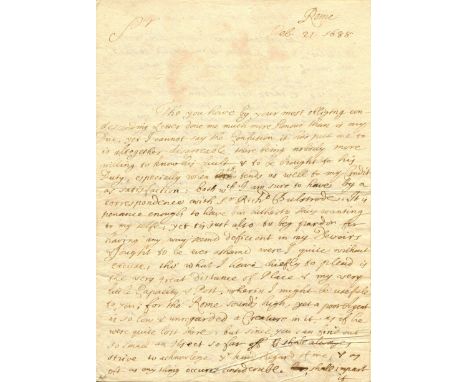 Rome
Feb. 21 1688
Sr
Tho you have by your most obliging con-
descending Letter done me much more honour than is my
due, yet I cannot say the Condition it has put me to
is altogether desireable there being nobody more
willing to know his fault & to be brought to his
Duty, especially when tends as well to my Credit
as satisfaction; both wch I am sure to have by a
correspondence with Sr Richd Bulstrode. It is
penance enough to have been this wanting
to my self, yet I must also beg pardon for
having any way seem'd deficient in my Devoirs
& ought to be ever ashamed were I quite without
excuse; this what I have chiefly to plead is
the very great distance of Place & my very
little Capacity & Post, wherin I might be usefull
to you; for tho Rome sounds high, yet a poor Agent
is so low & unregarded a Creature in it, as if he
were quite lost there; but since you can find out
so small an Object so far off I shall always
strive to acknowledge yr kind Regard of me, & as
oft as any thing occurs considerable shall impart
it